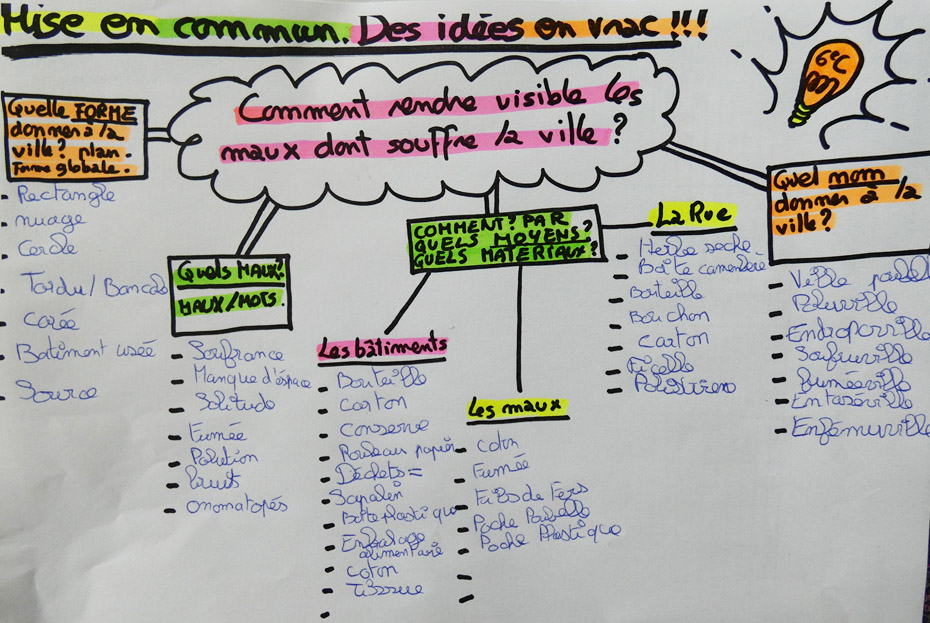 Mise en commun. Des idées en vrac !!!
6eC
Comment rendre visible les
maux dont souffre la ville ?
Quelle FORME
donner à la
ville? plan.
Forme globale.
- Rectangle
- nuage
- Cercle
- Tordu/Bancale
- Carée
- Batiment usée
- Source
Quels MAUX?
MAUX/MOTS.
- Soufrance
- Manque d'éspace
- Solitude
- Fumée
- Polution
- bruit
- onomatopés
COMMENT? PAR
QUELS MOYENS?
QUELS MATERIAUX?
Les bâtiments
- Bouteille
- Carton
- Conserve
- Rouleau papier
- Déchets =
- Sopalin
- Boite plastique
- Embalage
alimentaire
- coton
- Tissue
-
Les maux
- coton
- Fumée
- Fils de Fers
- Poche Poubelle
- Poche Plastique
-
-
La Rue
- Herbe seche
- Boite camenbère
- Bouteille
- Bouchon
- Carton
- Ficelle
- Polistiren
Quel nom
donner à la
ville?
- Ville
- Polueville
- Soufruville
- Fuméeville
- Entaséville
- Enfémuville